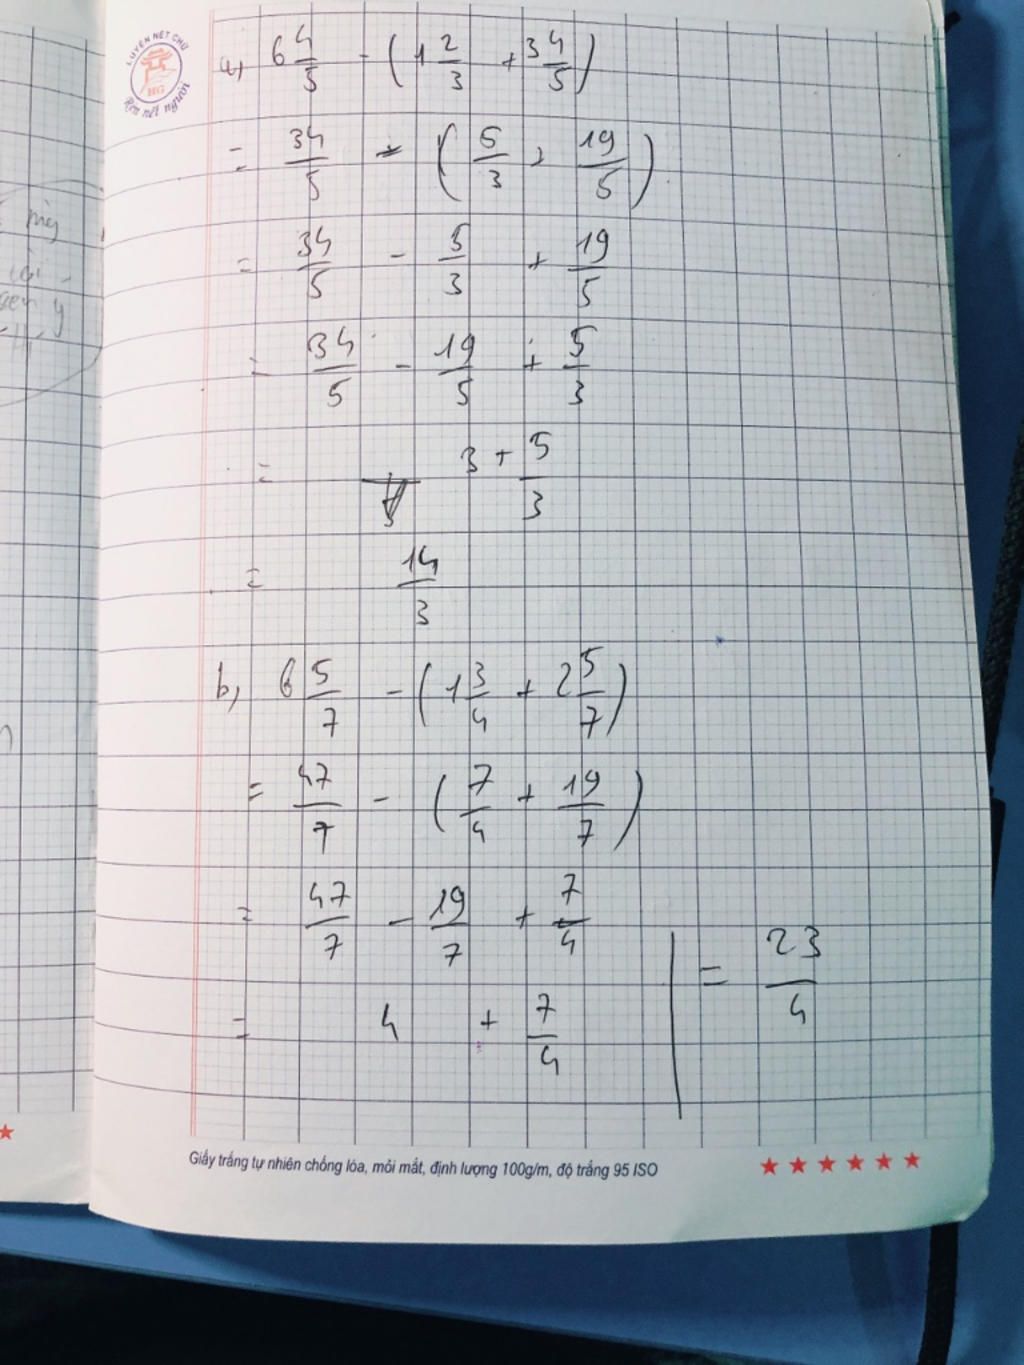 LUYỆN NÉT CHỮ
HG
Rèn nết người
a, 6 4/5 - (1 2/3 + 3 4/5)
= 34/5 - (5/3 + 19/5)
= 34/5 - 5/3 + 19/5
= 34/5 - 19/5 + 5/3
= 3 + 5/3
= 14/3
b, 6 5/7 - (1 3/4 + 2 5/7)
= 47/7 - (7/4 + 19/7)
= 47/7 - 19/7 + 7/4
= 4 + 7/4
= 23/4
Giấy trắng tự nhiên chống lóa, mỏi mắt, định lượng 100g/m, độ trắng 95 ISO